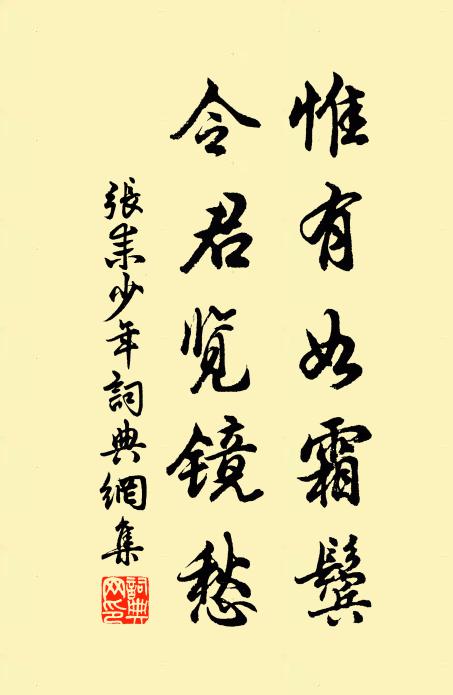 惟有如霜鬓
令君览镜愁
張耒少年詞典網集
詞典网印